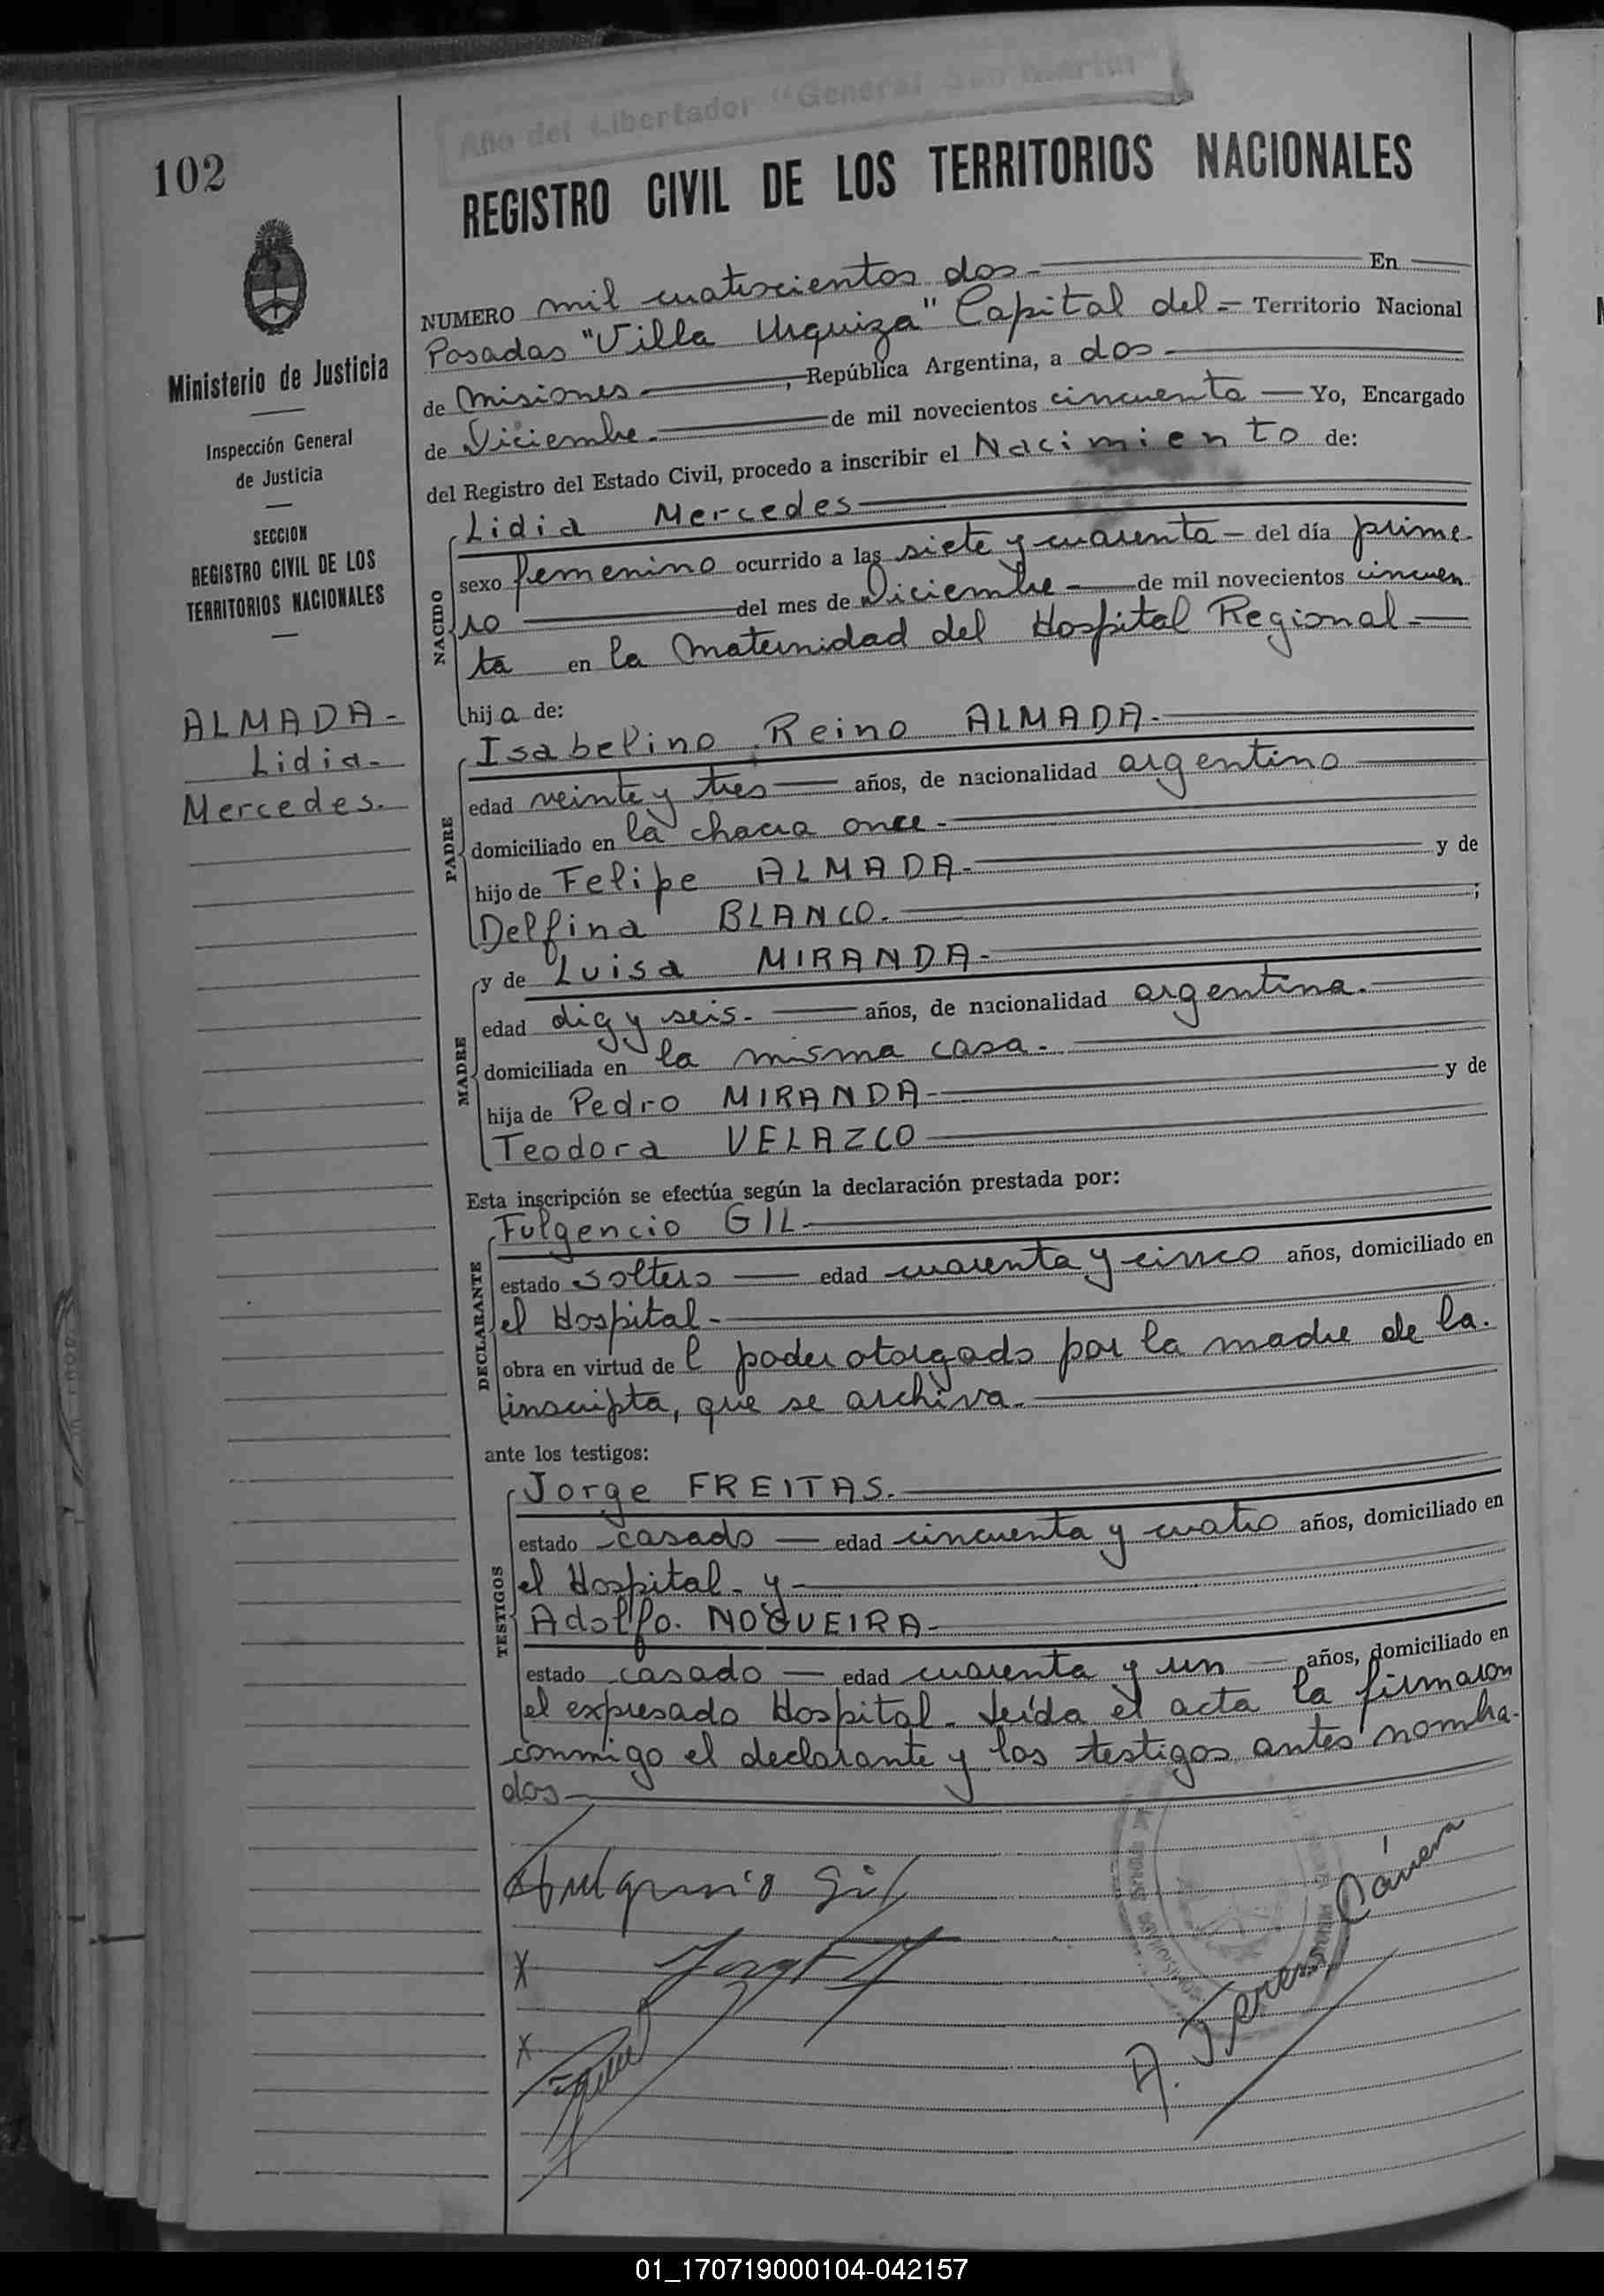 Año del Libertador "General San Martín"
102
REGISTRO CIVIL DE LOS TERRITORIOS NACIONALES
Ministerio de Justicia
Inspección General
de Justicia
SECCION
REGISTRO CIVIL DE LOS
TERRITORIOS NACIONALES
ALMADA-
Lidia-
Mercedes.
NUMERO mil cuatrocientos dos- En
Posadas "Villa Urquiza" Capital del = Territorio Nacional
de Misiones , República Argentina, a dos
de Diciembre. de mil novecientos cincuenta Yo, Encargado
del Registro del Estado Civil, procedo a inscribir el Nacimiento de:
NACIDO
Lidia Mercedes
sexo femenino ocurrido a las siete y cuarenta - del día prime-
ro del mes de Diciembre - de mil novecientos cincuen
ta en la Maternidad del Hospital Regional-
hija de:
PADRE
Isabelino Reino ALMADA-
edad veinte y tres años, de nacionalidad argentino
domiciliado en la chacra once-
hijo de Felipe ALMADA- y de
Delfina BLANCO. ;
MADRE
y de Luisa MIRANDA-
edad diez y seis. años, de nacionalidad argentina.
domiciliada en la misma casa-
hija de Pedro MIRANDA- y de
Teodora VELAZCO
Esta inscripción se efectúa según la declaración prestada por:
DECLARANTE
Fulgencio GIL
estado soltero edad cuarenta y cinco años, domiciliado en
el Hospital-
obra en virtud del poder otorgado por la madre de la.
inscripta, que se archiva.
ante los testigos:
TESTIGOS
Jorge FREITAS.
estado casado edad cincuenta y cuatro años, domiciliado en
el Hospital- y-
Adolfo. NOGUEIRA-
estado casado edad cuarenta y un años, domiciliado en
el expresado Hospital- Leída el acta la firmaron
conmigo el declarante y los testigos antes nombra-
dos
Fulgencio Gil
X Jorge F
X
A. Jerez Cámera
01_170719000104-042157